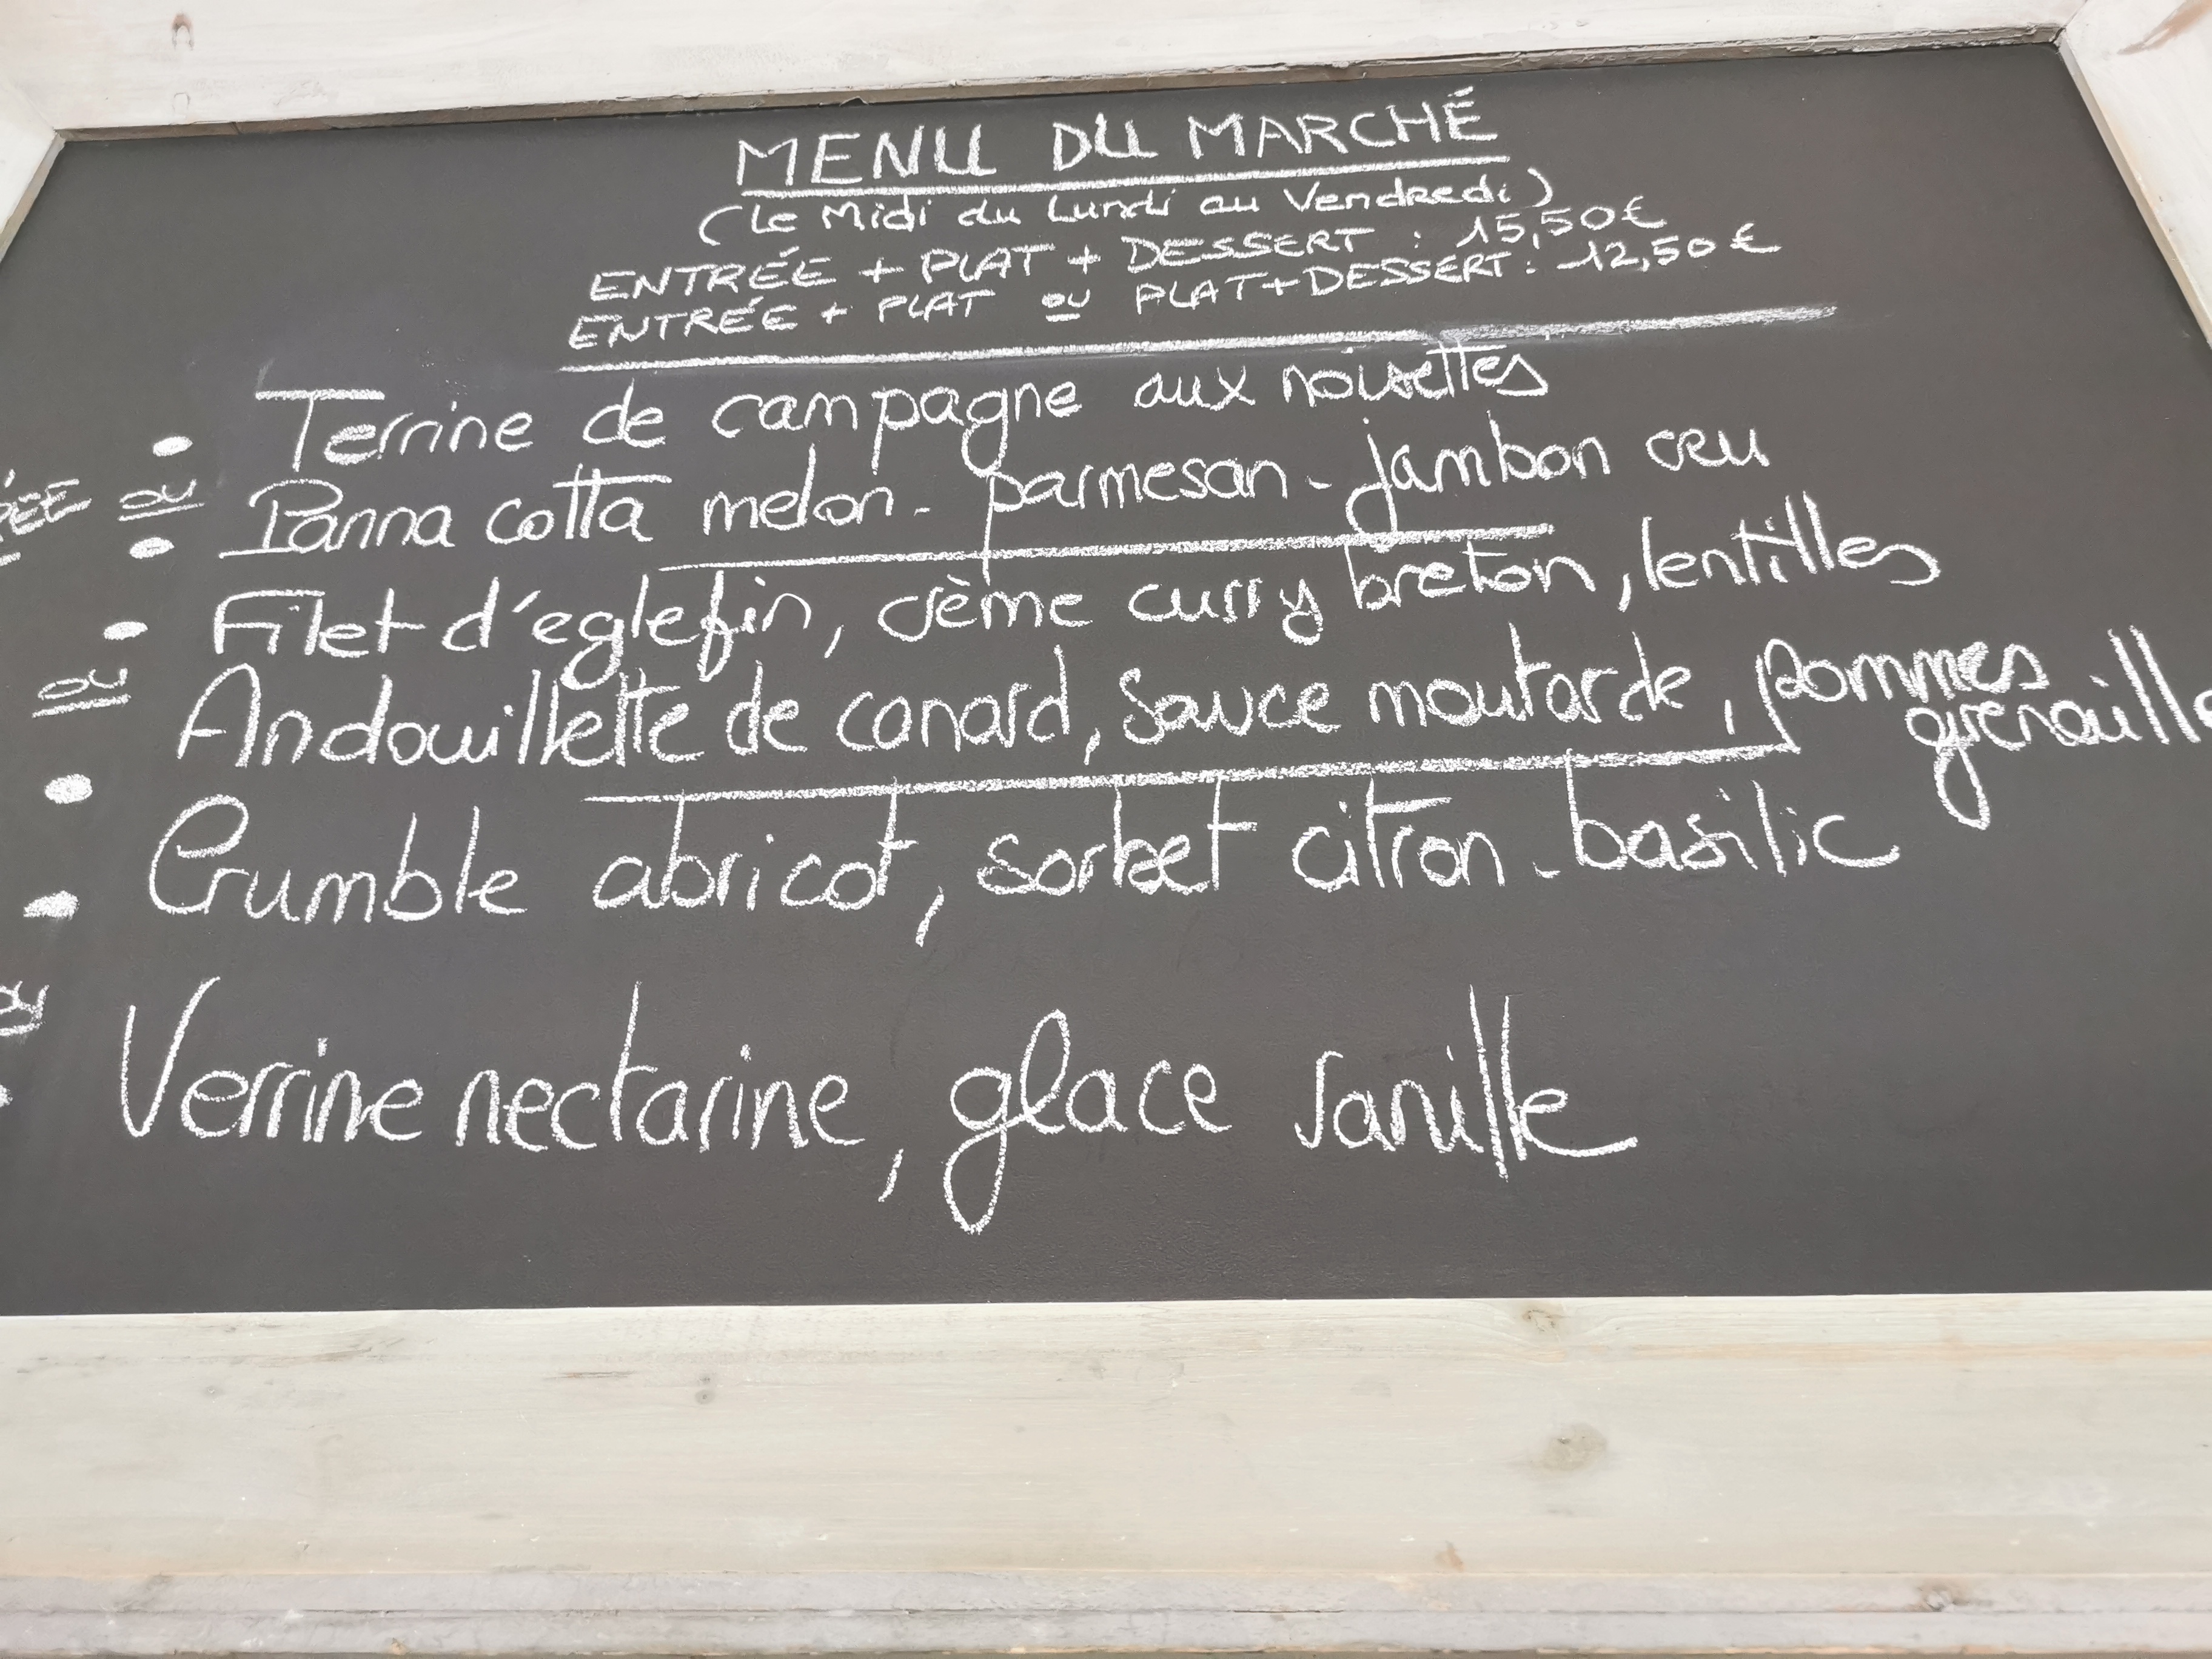 MENU DU MARCHÉ
(Le Midi du Lundi au Vendredi)
ENTRÉE + PLAT + DESSERT : 15,50€
ENTRÉE + PLAT OU PLAT+DESSERT : 12,50€
• Terrine de campagne aux noisettes
OU
• Panna cotta melon - parmesan - jambon cru
• Filet d'eglefin, crème curry breton, lentilles
OU
• Andouillette de canard, sauce moutarde, pommes
grenaille
• Crumble abricot, sorbet citron - basilic
OU
• Verrine nectarine, glace vanille